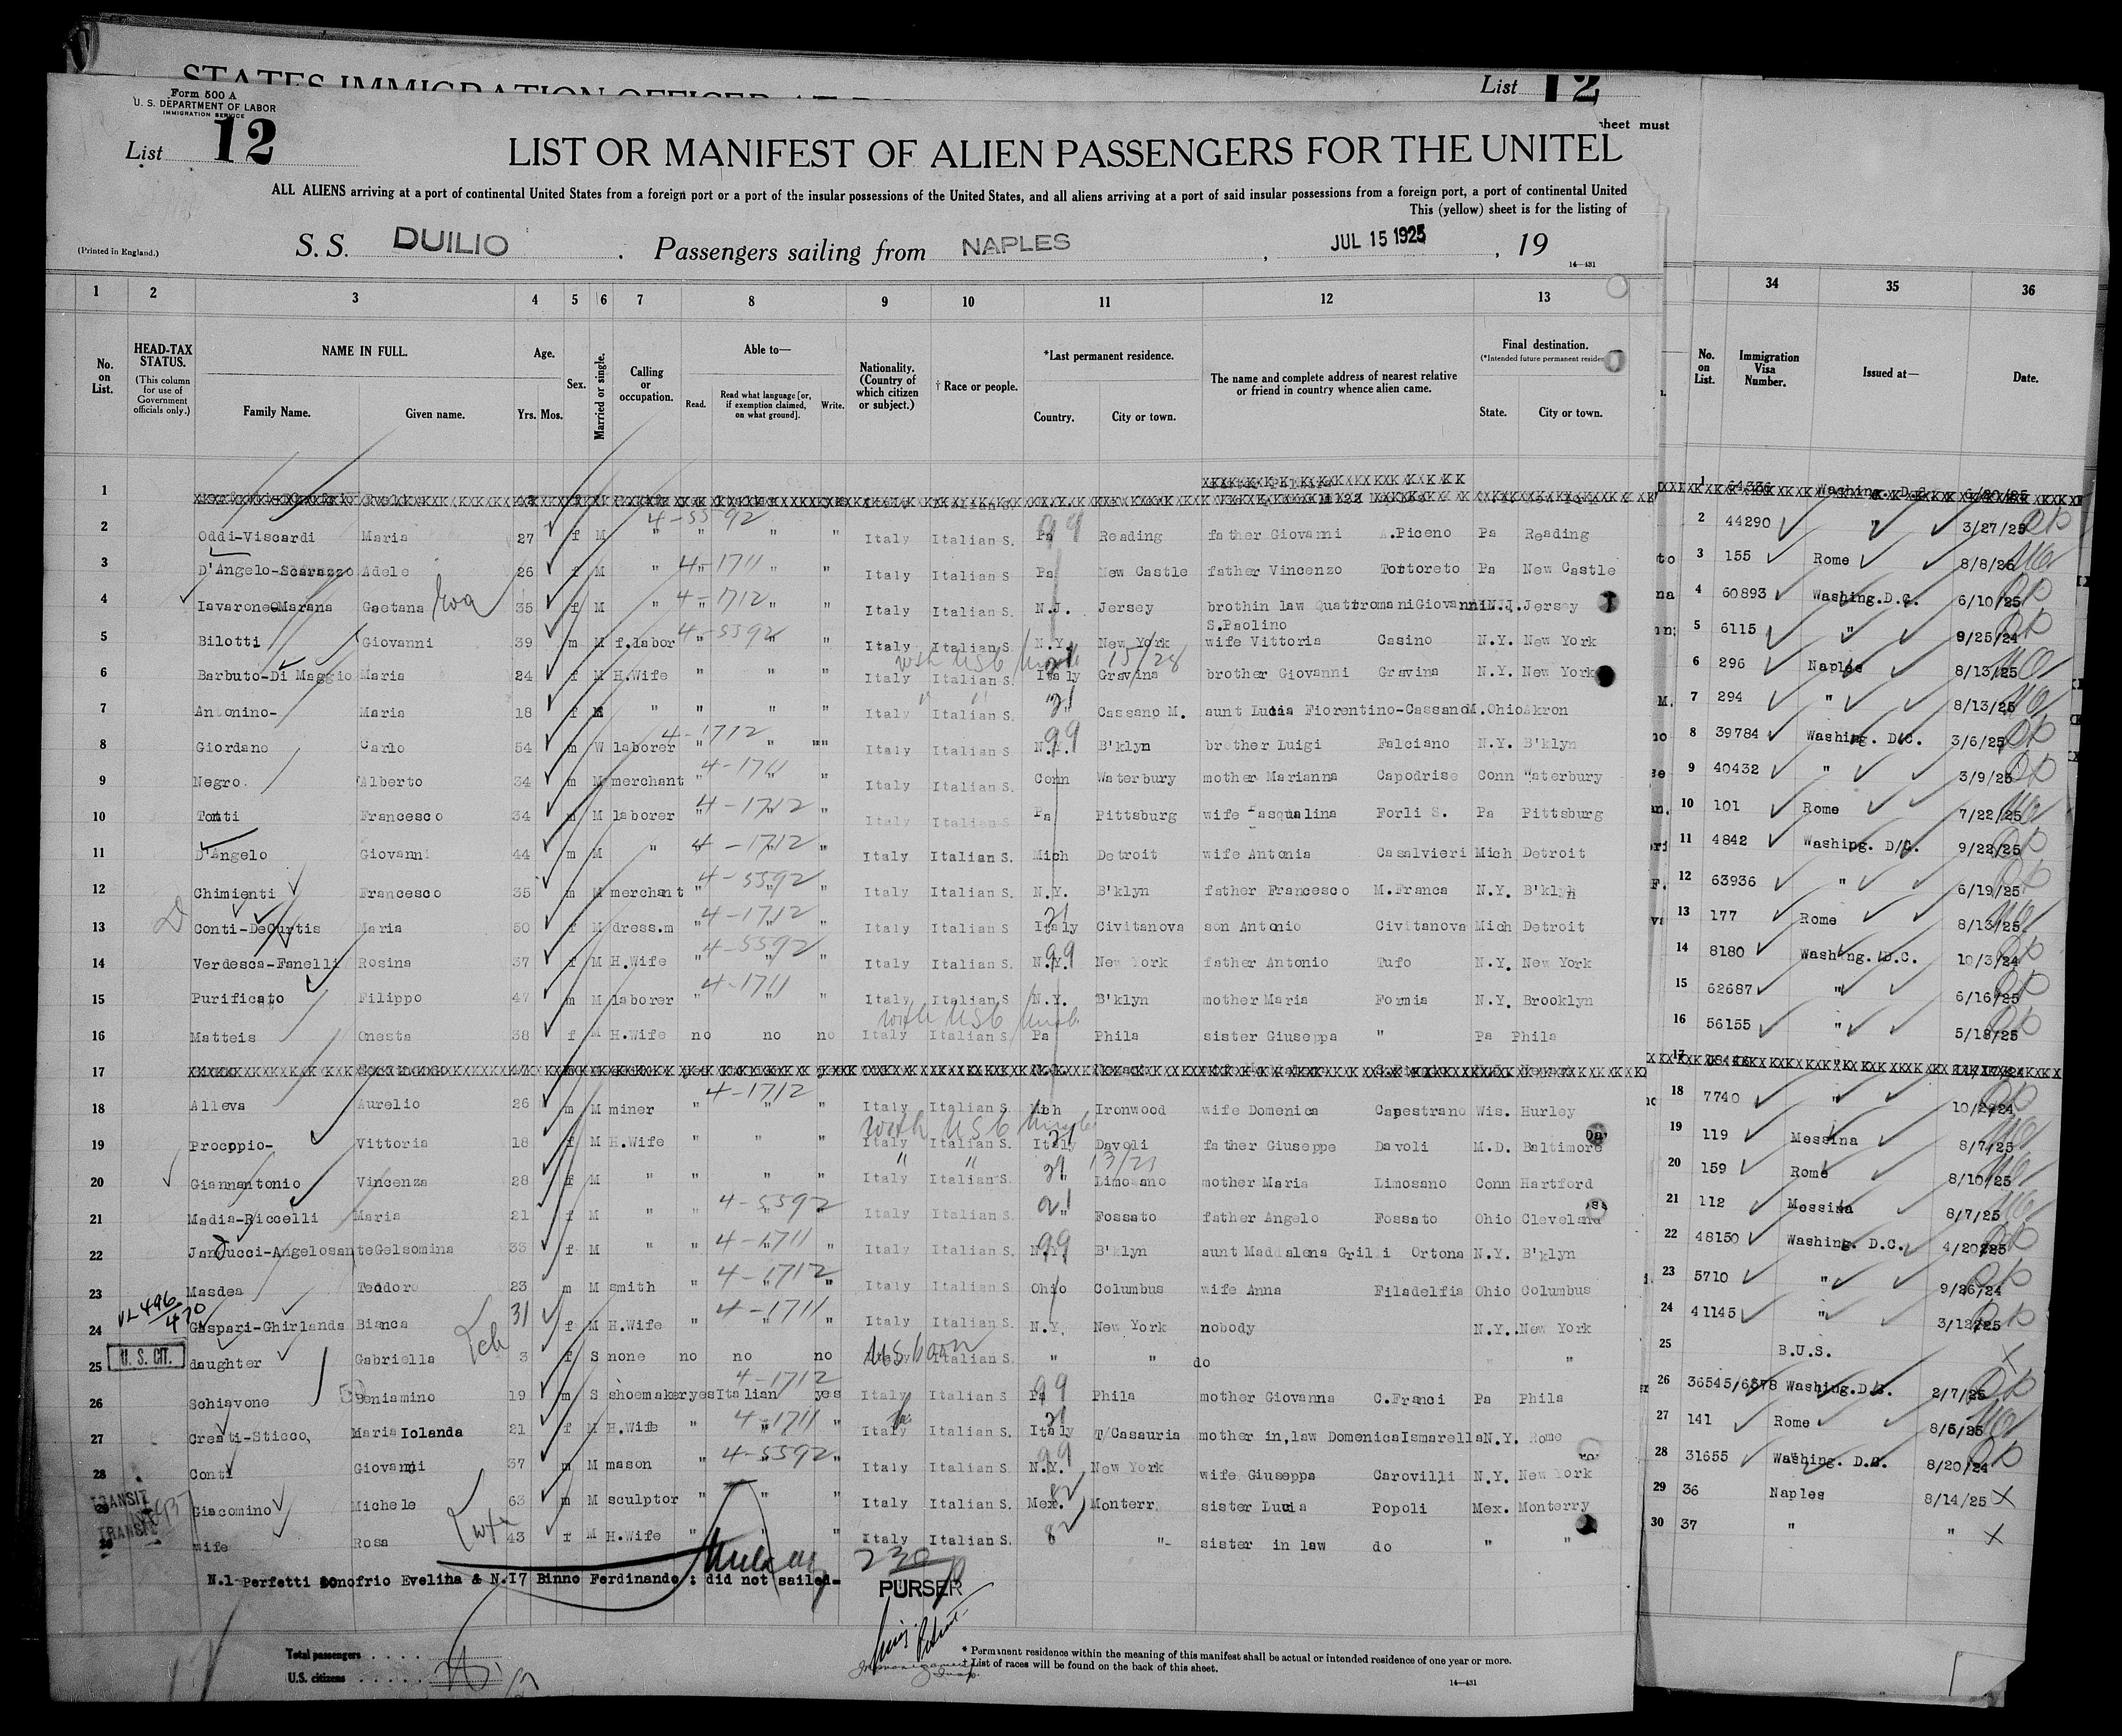 STATES IMMIGRATION OFFICER AT
List 12
sheet must
Form 500 A
U. S. DEPARTMENT OF LABOR
IMMIGRATION SERVICE
List 12
LIST OR MANIFEST OF ALIEN PASSENGERS FOR THE UNITED
ALL ALIENS arriving at a port of continental United States from a foreign port or a port of the insular possessions of the United States, and all aliens arriving at a port of said insular possessions from a foreign port, a port of continental United
This (yellow) sheet is for the listing of
(Printed in England.)
S. S. DUILIO . Passengers sailing from NAPLES , JUL 15 1925 , 19
14—431
1 2 3 4 5 6 7 8 9 10 11 12 13 34 35 36
No. on List. HEAD-TAX STATUS. (This column for use of Government officials only.) NAME IN FULL. Family Name. Given name. Age. Yrs. Mos. Sex. Married or single. Calling or occupation. Able to— Read. Read what language [or, if exemption claimed, on what ground]. Write. Nationality. (Country of which citizen or subject.) † Race or people. *Last permanent residence. Country. City or town. The name and complete address of nearest relative or friend in country whence alien came. Final destination. (*Intended future permanent residen State. City or town. No. on List. Immigration Visa Number. Issued at— Date.
1
4-5592
2 Oddi-Viscardi Maria 27 f M " " " " Italy Italian S. Pa Reading father Giovanni .Piceno Pa Reading 2 44290 " 3/27/25
3 D'Angelo-Scarazzo Adele 26 f M " 4-1711 " " Italy Italian S Pa New Castle father Vincenzo Tortoreto Pa New Castle 3 155 Rome 8/8/25
4 Iavarone-Marana Gaetana 35 f M " 4-1712 " " Italy Italian S. N.J. Jersey brothin law QuattromaniGiovanni N.J. Jersey 4 60893 Washing.D.C. 6/10/25
S.Paolino
5 Bilotti Giovanni 39 m M f.labor 4-5592 " " Italy Italian S. N.Y. New York wife Vittoria Casino N.Y. New York 5 6115 " 9/25/24
with USC 15/28
6 Barbuto-Di Maggio Maria 24 f M H.Wife " " " Italy Italian S. Italy Gravina brother Giovanni Gravina N.Y. New York 6 296 Naples 8/13/25
7 Antonino- Maria 18 f M " " " " Italy Italian S. 21 Cassano M. aunt Lucia Fiorentino-Cassano M. Ohio Akron 7 294 " 8/13/25
8 Giordano Carlo 54 m W laborer 4-1712 " "" Italy Italian S N.Y. 99 B'klyn brother Luigi Falciano N.Y. B'klyn 8 39784 Washing. D.C. 3/6/25
9 Negro. Alberto 34 m M merchant 4-1711 " Italy Italian S. Conn Waterbury mother Marianna Capodrise Conn Waterbury 9 40432 " 3/9/25
10 Tonti Francesco 34 m M laborer 4-1712 " Italy Italian S Pa Pittsburg wife Pasqualina Forli S. Pa Pittsburg 10 101 Rome 7/22/25
11 D'Angelo Giovanni 44 m M " 4-1712 " Italy Italian S. Mich Detroit wife Antonia Casalvieri Mich Detroit 11 4842 Washing. D.C. 9/22/25
12 Chimienti Francesco 35 m M merchant 4-5592 " Italy Italian S. N.Y. B'klyn father Francesco M.Franca N.Y. B'klyn 12 63936 " 6/19/25
13 Conti-DeCurtis Maria 50 f M dress.m 4-1712 " Italy Italian S Italy 21 Civitanova son Antonio Civitanova Mich Detroit 13 177 Rome 8/13/25
14 Verdesca-Fanelli Rosina 37 f M H.Wife 4-5592 " Italy Italian S. N.Y. 99 New York father Antonio Tufo N.Y. New York 14 8180 Washing. D.C. 10/3/24
15 Purificato Filippo 47 m M laborer 4-1711 " Italy Italian S N.Y. B'klyn mother Maria Formia N.Y. Brooklyn 15 62687 " 6/16/25
with USC
16 Matteis Onesta 38 f M H.Wife no no no Italy Italian S Pa Phila sister Giuseppa " Pa Phila 16 56155 " 5/18/25
17 17
18 Alleva Aurelio 26 m M miner " 4-1712 " Italy Italian S. Mich Ironwood wife Domenica Capestrano Wis. Hurley 18 7740 " 10/2/24
with USC
19 Procopio- Vittoria 18 f M H.Wife " " " Italy Italian S. Italy Davoli father Giuseppe Davoli M.D. Baltimore 19 119 Messina 8/7/25
20 Giannantonio Vincenza 28 f M " " " " Italy Italian S. 21 Limosano mother Maria Limosano Conn Hartford 20 159 Rome 8/10/25
21 Madia-Riccelli Maria 21 f M " " 4-5592 " Italy Italian S. 21 Fossato father Angelo Fossato Ohio Cleveland 21 112 Messina 8/7/25
22 Janducci-Angelosante Gelsomina 33 f M " " 4-1711 " Italy Italian S N.Y. 99 B'klyn aunt Maddalena Grilli Ortona N.Y. B'klyn 22 48150 Washing. D.C. 4/20/25
23 Masdea Teodoro 23 m M smith " 4-1712 " Italy Italian S. Ohio Columbus wife Anna Filadelfia Ohio Columbus 23 5710 " 9/26/24
VL 496/470
24 Gaspari-Ghirlanda Bianca 31 f M H.Wife " 4-1711 " Italy Italian S. N.Y. New York nobody N.Y. New York 24 41145 " 3/12/25
U. S. CIT.
25 daughter Gabriella 3 f S none no no no US born Italian S. " " do " 25 B.U.S.
26 Schiavone Beniamino 19 m S shoemaker yes Italian 4-1712 yes Italy Italian S Pa 99 Phila mother Giovanna C.Franci Pa Phila 26 36545/6578 Washing.D.C. 2/7/25
27 Creati-Sticco, Maria Iolanda 21 f M H.Wife " 4-1711 " Italy Italian S. Italy 21 T/Casauria mother in,law Domenica Ismarella N.Y. Rome 27 141 Rome 8/5/25
28 Conti Giovanni 37 m M mason " 4-5592 " Italy Italian S. N.Y. 99 New York wife Giuseppa Carovilli N.Y. New York 28 31655 Washing. D.C. 8/20/24
TRANSIT
29 Giacomino Michele 63 m M sculptor " " " Italy Italian S. Mex. Monterr. sister Lucia Popoli Mex. Monterry 29 36 Naples 8/14/25
TRANSIT
30 wife Rosa 43 f M H.Wife " " " Italy Italian S. " "- sister in law do " " 30 37 " "
N.1 Perfetti Donofrio Evelina & N.17 Binno Ferdinando : did not sailed=
PURSER
Total passengers . . . . .
U.S. citizens . . . . .
* Permanent residence within the meaning of this manifest shall be actual or intended residence of one year or more.
† List of races will be found on the back of this sheet.
14—431